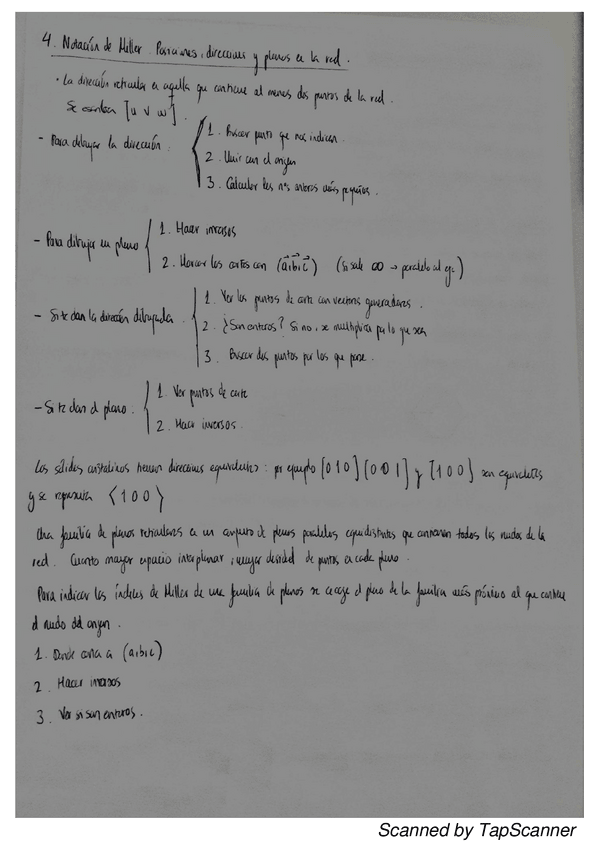 4. Notación de Miller. Posiciones, direcciones y planos en la red.
· La dirección reticular es aquella que contiene al menos dos puntos de la red.
Se escriben [u v w].
- Para dibujar la dirección:
1. Buscar punto que nos indican.
2. Unir con el origen
3. Calcular los nos enteros más pequeños.
- Para dibujar un plano
1. Hacer inversos
2. Marcar los cortes con (a, b, c) (si sale ∞ → paralelo al eje)
- Si te dan la dirección dibujada
1. Ver los puntos de corte con vectores generadores.
2. ¿Son enteros? Si no, se multiplica por lo que sea
3. Buscar dos puntos por los que pase.
- Si te dan el plano.
1. Ver puntos de corte
2. Hacer inversos.
Los sólidos cristalinos tienen direcciones equivalentes: por ejemplo [010] [001] y [100] son equivalentes
y se representa ⟨100⟩
Una familia de planos reticulares es un conjunto de planos paralelos equidistantes que contienen todos los nudos de la
red. Cuanto mayor espacio interplanar, mayor densidad de puntos en cada plano.
Para indicar los índices de Miller de una familia de planos se escoge el plano de la familia más próximo al que contiene
el nudo del origen.
1. Donde corta a (a, b, c)
2. Hacer inversos
3. Ver si son enteros.
Scanned by TapScanner